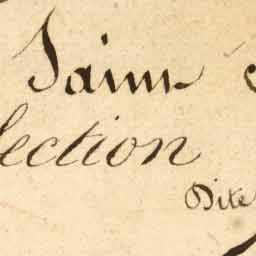 Saint
lection
Dite